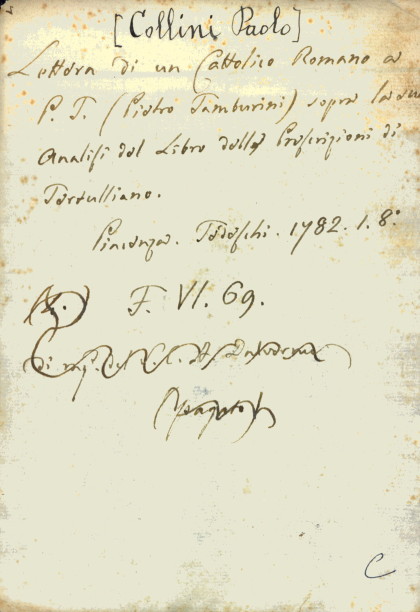 [Collini Paolo]
Lettera di un Cattolico Romano a
P. T. (Pietro Tamburini) sopra la sua
Analisi del Libro delle Proscrizioni di
Tertulliano.
Piacenza. Tedeschi. 1782. 1. 8.º
F. VI. 69.
C